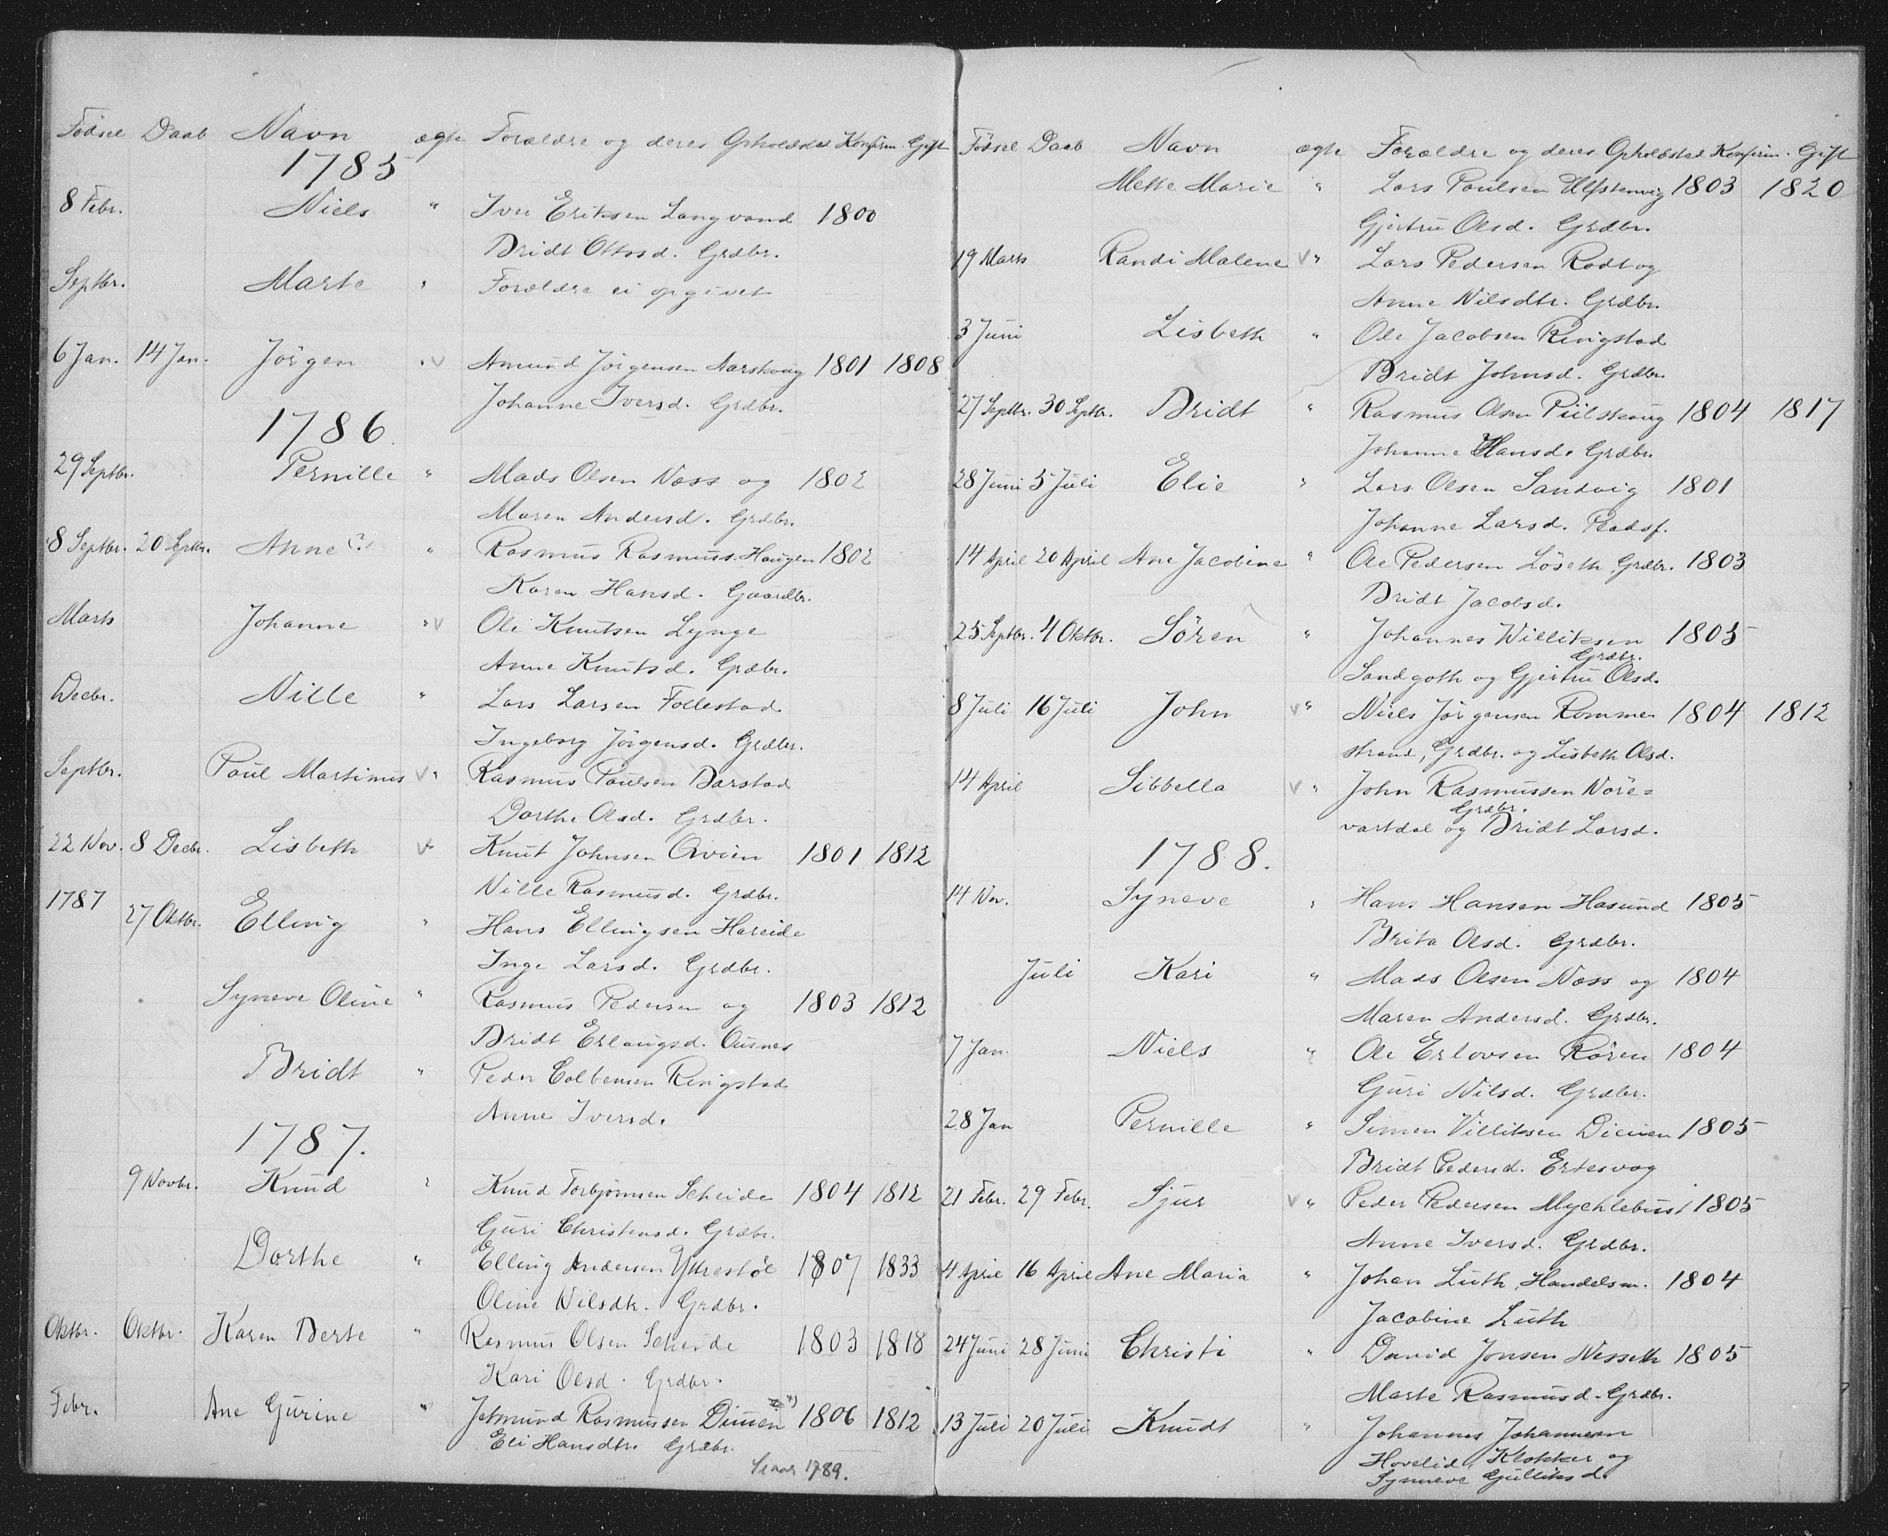 Fødsel Daab Navn ægte Forældre og deres Opholdsted Konfirm. Gift
1785
8 Febr. Niels " Iver Eriksen Langvand 1800
Bridt Ottosd. Grdbr.
Septbr. Marte " Forældre ei opgivet
6 Jan. 14 Jan. Jørgen " v Amund Jørgensen Aarskoug 1801 1808
Johanne Iversd. Grdbr.
1786.
29 Septbr. Pernille " Mads Olsen Næss og 1802
Maren Andersd. Grdbr.
8 Septbr. 20 Septbr. Anne (?) " Rasmus Rasmuss. Haugen 1802
Karen Hansd. Gaardbr.
Marts Johanne " v Ole Knutsen Lynge
Anne Knutsd. Grdbr.
Decbr. Nille " Lars Larsen Follestad
Ingeborg Jørgensd. Grdbr.
Septbr. Poul Martinus v " Rasmus Poulsen Barstad
Dorthe Olsd. Grdbr.
22 Nov. 8 Decbr. Lisbeth v Knut Johnsen Qvien 1801 1812
Nille Rasmusd. Grdbr.
1787 27 Oktbr. Elling " Hans Ellingsen Hareide
Inge Larsd. Grdbr.
Syneve Oline " Rasmus Pedersen og 1803 1812
Bridt Erlangsd. Ousnes
Bridt " Peder Colbensen Ringstad
Anne Iversd.
1787.
9 Novbr. Knud " Knud Torbjørnsen Scheide 1804 1812
Guri Christensd. Grdbr.
Dorthe " Elling Andersen Yttrestøl 1807 1833
Oline Nilsdtr. Grdbr.
Oktbr. Oktbr. Karen Berte " Rasmus Olsen Scheide 1803 1818
Kari Olsd. Grdbr.
Febr. Ane Gurine " Jetmund Rasmussen Dimen 1806 1812
Eli Hansdtr. Grdbr.
1789.
Fødsel Daab Navn ægte Forældre og deres Opholdsted Konfirm. Gift
Mette Marie " Lars Poulsen Ulfstenvig 1803 1820
Gjertru Olsd. Grdbr.
19 Marts Randi Malene v " Lars Pedersen Rødt og
Anne Nilsdtr. Grdbr.
3 Juni Lisbeth " Ole Jacobsen Ringstad
Bridt Johnsd. Grdbr.
27 Septbr. 30 Septbr. Bridt " Rasmus Olsen Pilskoug 1804 1817
Johanne Hansd. Grdbr.
28 Juni 5 Juli Elie " Lars Olsen Sandvig 1801
Johanne Larsd. Pladsf.
14 April 20 April Ane Jacobine " Ole Pedersen Løseth, Grdbr. 1803
Bridt Jacobsd.
25 Septbr. 4 Oktbr. Søren " Johannes Williksen 1805
Grdbr.
Sandgoth og Gjertru Olsd.
8 Juli 16 Juli John v " Niels Jørgensen Romme- 1804 1812
strand, Grdbr. og Lisbeth Olsd.
14 April Sibbella v " John Rasmussen Nøre=
Grdbr.
vartdal og Bridt Larsd.
1788.
14 Nov. Syneve " Hans Hansen Hasund 1805
Brita Olsd. Grdbr.
Juli Kari " Mads Olsen Næss og 1804
Maren Andersd. Grdbr.
7 Jan. Niels " Ole Erlovsen Røren 1804
Guri Nilsd. Grdbr.
28 Jan Pernille " Simen Villiksen Dicnen 1805
Bridt Pedersd. Ertesvog
21 Febr. 29 Febr. Sjur v " Peder Pedersen Mychlebust 1805
Anne Iversd. Grdbr.
4 April 16 April Ane Maria " Johan Luth, Handelsm. 1804
Jacobine Luth
24 Juni 28 Juni Christi " David Jonsen Nesseth 1805
Marte Rasmusd. Grdbr.
13 Juli 20 Juli Knudt " Johannes Johannesen
Hovelid, Klokker og
Synneve Gulliksd.